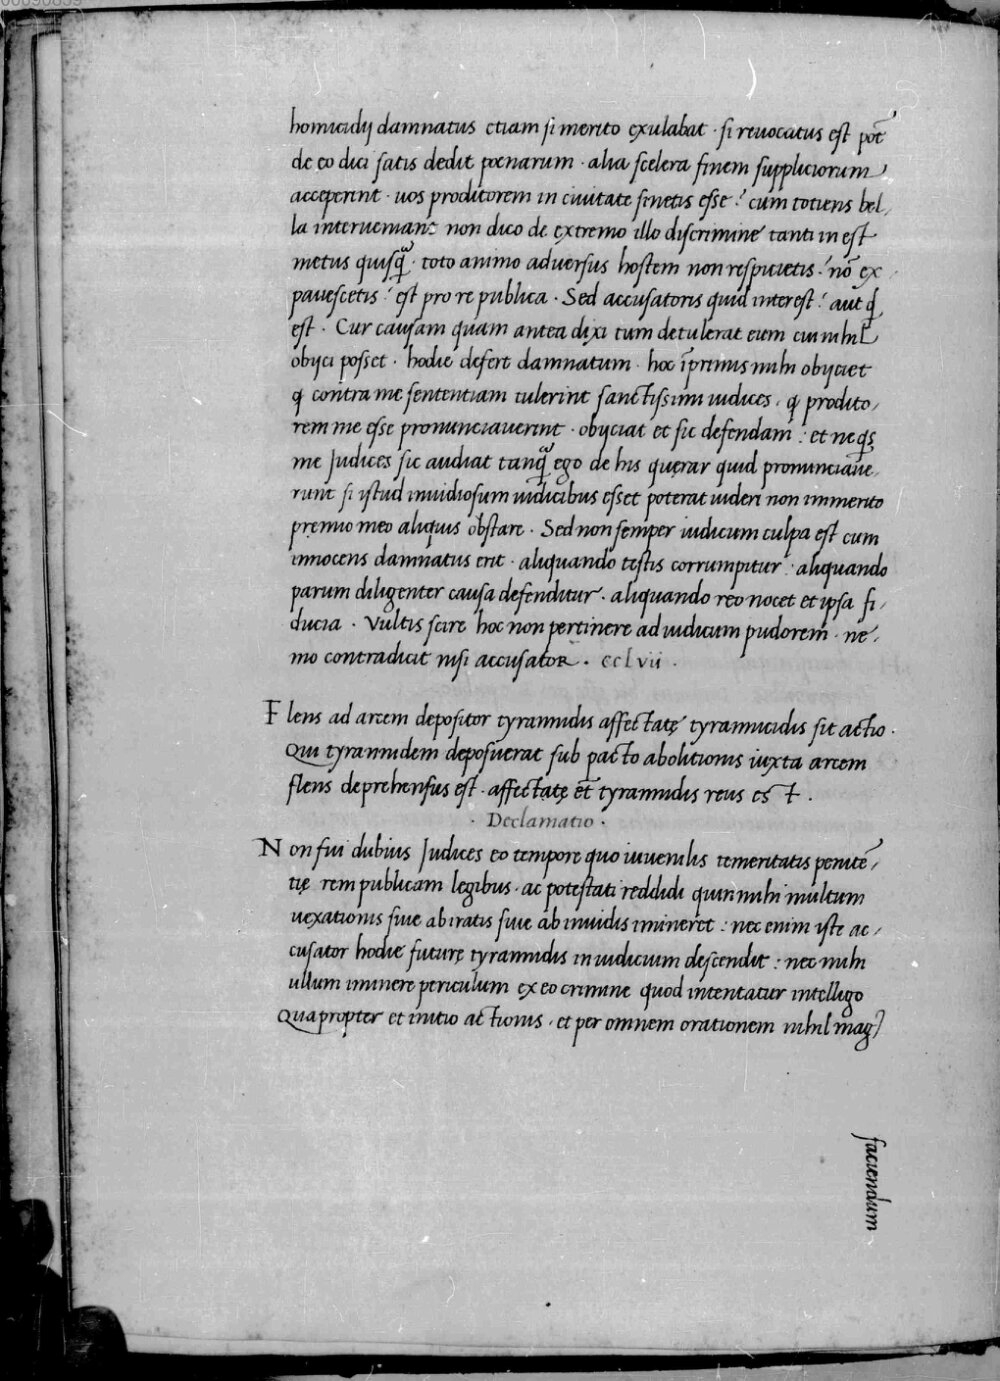 homicidij damnatus etiam si merito exulabat · si reuocatus est pot̄
de eo dici satis dedit poenarum · alia scelera finem suppliciorum
acceperint · uos proditorem in ciuitate sinetis esse ? cum totiens bel,
la interueniant non dico de extremo illo discrimine tanti in est
metus quisq̃ · toto animo aduersus hostem non respicietis ? nō ex
pauescetis ? est pro re publica · Sed accusatoris quid interest ? aut qd
est · Cur causam quam antea dixi tum detulerat eum cui nihil
obijci posset · hodie defert damnatum · hoc īprimis mihi obijciet
q contra me sententiam tulerint sanctissimi iudices · q prodito,
rem me esse pronunciauerint · obijciat et sic defendam : et ne qs
me Judices sic audiat tanq̃ ego de his querar quid pronunciaue,
runt si istud inuidiosum iudicibus esset poterat uideri non immerito
premio meo aliquis obstare · Sed non semper iudicum culpa est cum
innocens damnatus erit · aliquando testis corrumpitur : aliquando
parum diligenter causa defenditur · aliquando reo nocet et ipsa fi,
ducia · Vultis scire hoc non pertinere ad iudicum pudorem · ne,
mo contradicit nisi accusator · cclvii ·
Flens ad arcem depositor tyrannidis affectatę tyrannicidis sit actio ·
Qui tyrannidem deposuerat sub pacto abolitionis iuxta arcem
flens deprehensus est · affectatę et tyrannidis reus es t ·
· Declamatio ·
Non fui dubius Judices eo tempore quo iuuenilis temeritatis penitē,
tię rem publicam legibus · ac potestati reddidi quin mihi multum
uexationis siue ab iratis siue ab inuidis imineret : nec enim iste ac,
cusator hodie futurę tyrannidis in iudicium descendit : nec mihi
ullum iminere periculum ex eo crimine quod intentatur intelligo
Quapropter et initio actionis · et per omnem orationem nihil mag)
faciendum